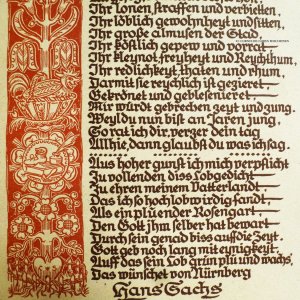 Ihr löblich gewohnheyt und sitten,
Ihr große almusen der Stad,
Ihr köstlich gepew und vorrat,
Ihr kleynot, freyheyt und Reychthum,
Ihr redlickeyt, thaten und rhum,
Darmit sie reychlich ist gezieret
Gekrönet und geblesenieret.
Mir würdt gebrechen zeyt und zung.
Weyl du nun bist an Jaren jung,
So rat ich dir, verzer dein tag
Allhie, dann glaubst du was ich sag.
Aus hoher gunst ich mich verpflicht
Zu vollenden diss Lobgedicht
Zu ehren meinem Vatterland
Das ich so hoch lob wirdig fandt,
Als ein pluender Rosengart,
Den Gott jhm selber hat bewart
Durch sein genad biss auff die Zeyt.
Gott geb noch lang mit eynigkeyt.
Auff das sein Lob grün plü und wachs,
Das wünschet von Nürnberg
Hans Sachs